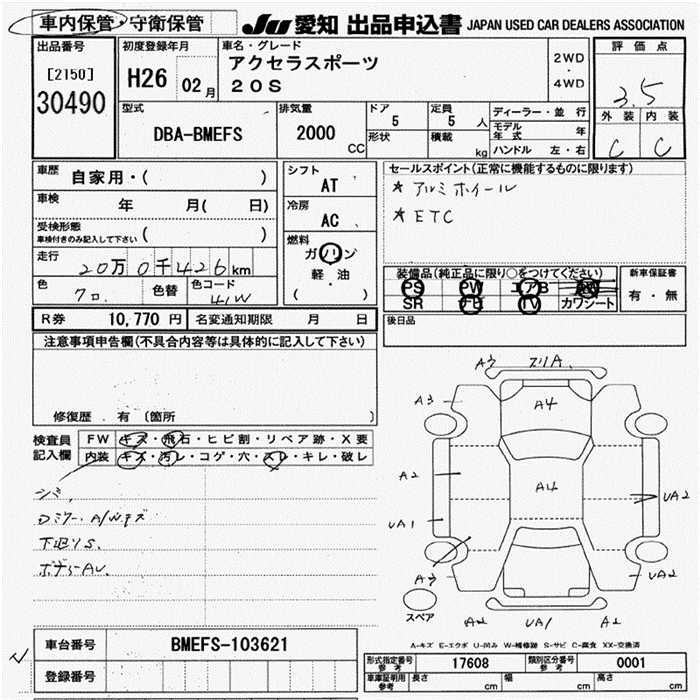 車内保管・守衛保管
JU 愛知 出品申込書 JAPAN USED CAR DEALERS ASSOCIATION
出品番号
[2150]
30490
初度登録年月
H26 02月
車名・グレード
アクセラスポーツ
20S
2WD
・
4WD
評価点
3.5
外装 内装
C C
型式
DBA-BMEFS
排気量
2000
CC
ドア
5
形状
定員
5 人
積載
kg
ディーラー・並行
モデル年式 年
ハンドル 左・右
車歴
自家用・( )
車検
年 月( 日)
受検形態
車検付きのみ記入して下さい ( )
走行
20万0千426km
色
クロ
色替
色コード
41W
シフト
AT
冷房
AC
燃料
ガソリン
軽・油
( )
セールスポイント(正常に機能するものに限ります)
* アルミホイール
* ETC
装備品(純正品に限り○をつけてください)
PS PW エアB
SR ナビ TV カワシート
新車保証書
有・無
後日品
R券 10,770 円 名変通知期限 月 日
注意事項申告欄(不具合内容等は具体的に記入して下さい)
修復歴・有〔箇所
検査員
記入欄
FW キズ・飛石・ヒビ割・リペア跡・X要
内装 キズ・汚レ・コゲ・穴・スレ・キレ・破レ
シミ,
Dミラー.A/Wキズ
下廻りS.
ボデーAU.
A3
A4
A2
A4
UA2
UA1
A3
UA2
スペア
A2 UA1 A2
A-キズ E-エクボ U-凹み W-補修跡 S-サビ C-腐食 XX-交換済
車台番号 BMEFS-103621
登録番号
型式指定番号
参考
17608
類別区分番号
参考
0001
車庫証明用
参考
長さ cm 幅 cm 高さ cm